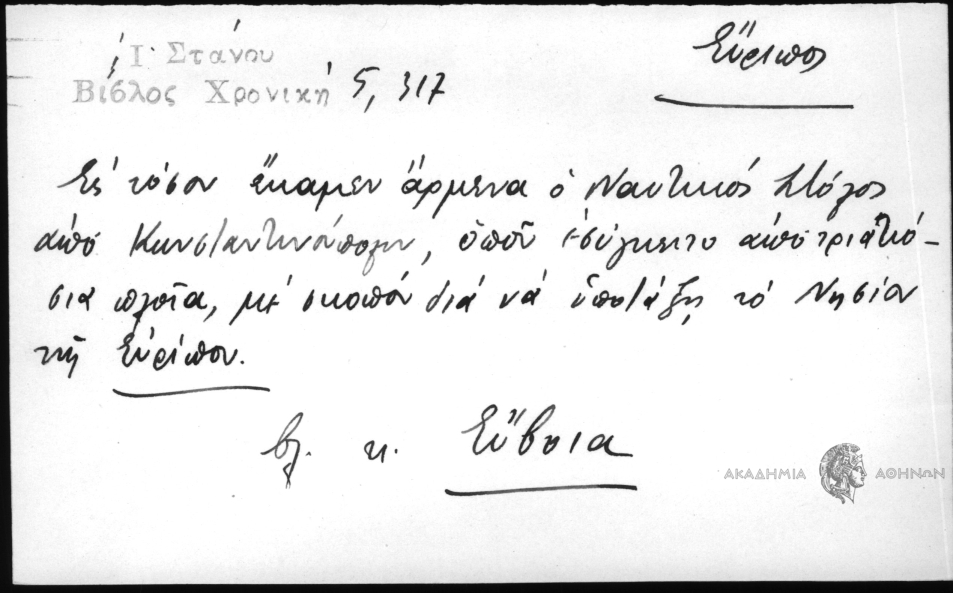 Εὔριπος
Ἰ. Στάνου
Βίβλος Χρονική 5, 317
Ἐς τόσον ἔκαμεν ἄρμενα ὁ Ναυτικός Στόλος
ἀπό Κωνσταντινούπολιν, ὁποῦ ἐσύγκειτο ἀπό τριακό-
σια πλοῖα, μέ σκοπόν διά νά ὑποτάξῃ τό Νησίον
τῆς Εὐρίπου.
βλ. κ. Εὔβοια
ΑΚΑΔΗΜΙΑ ΑΘΗΝΩΝ